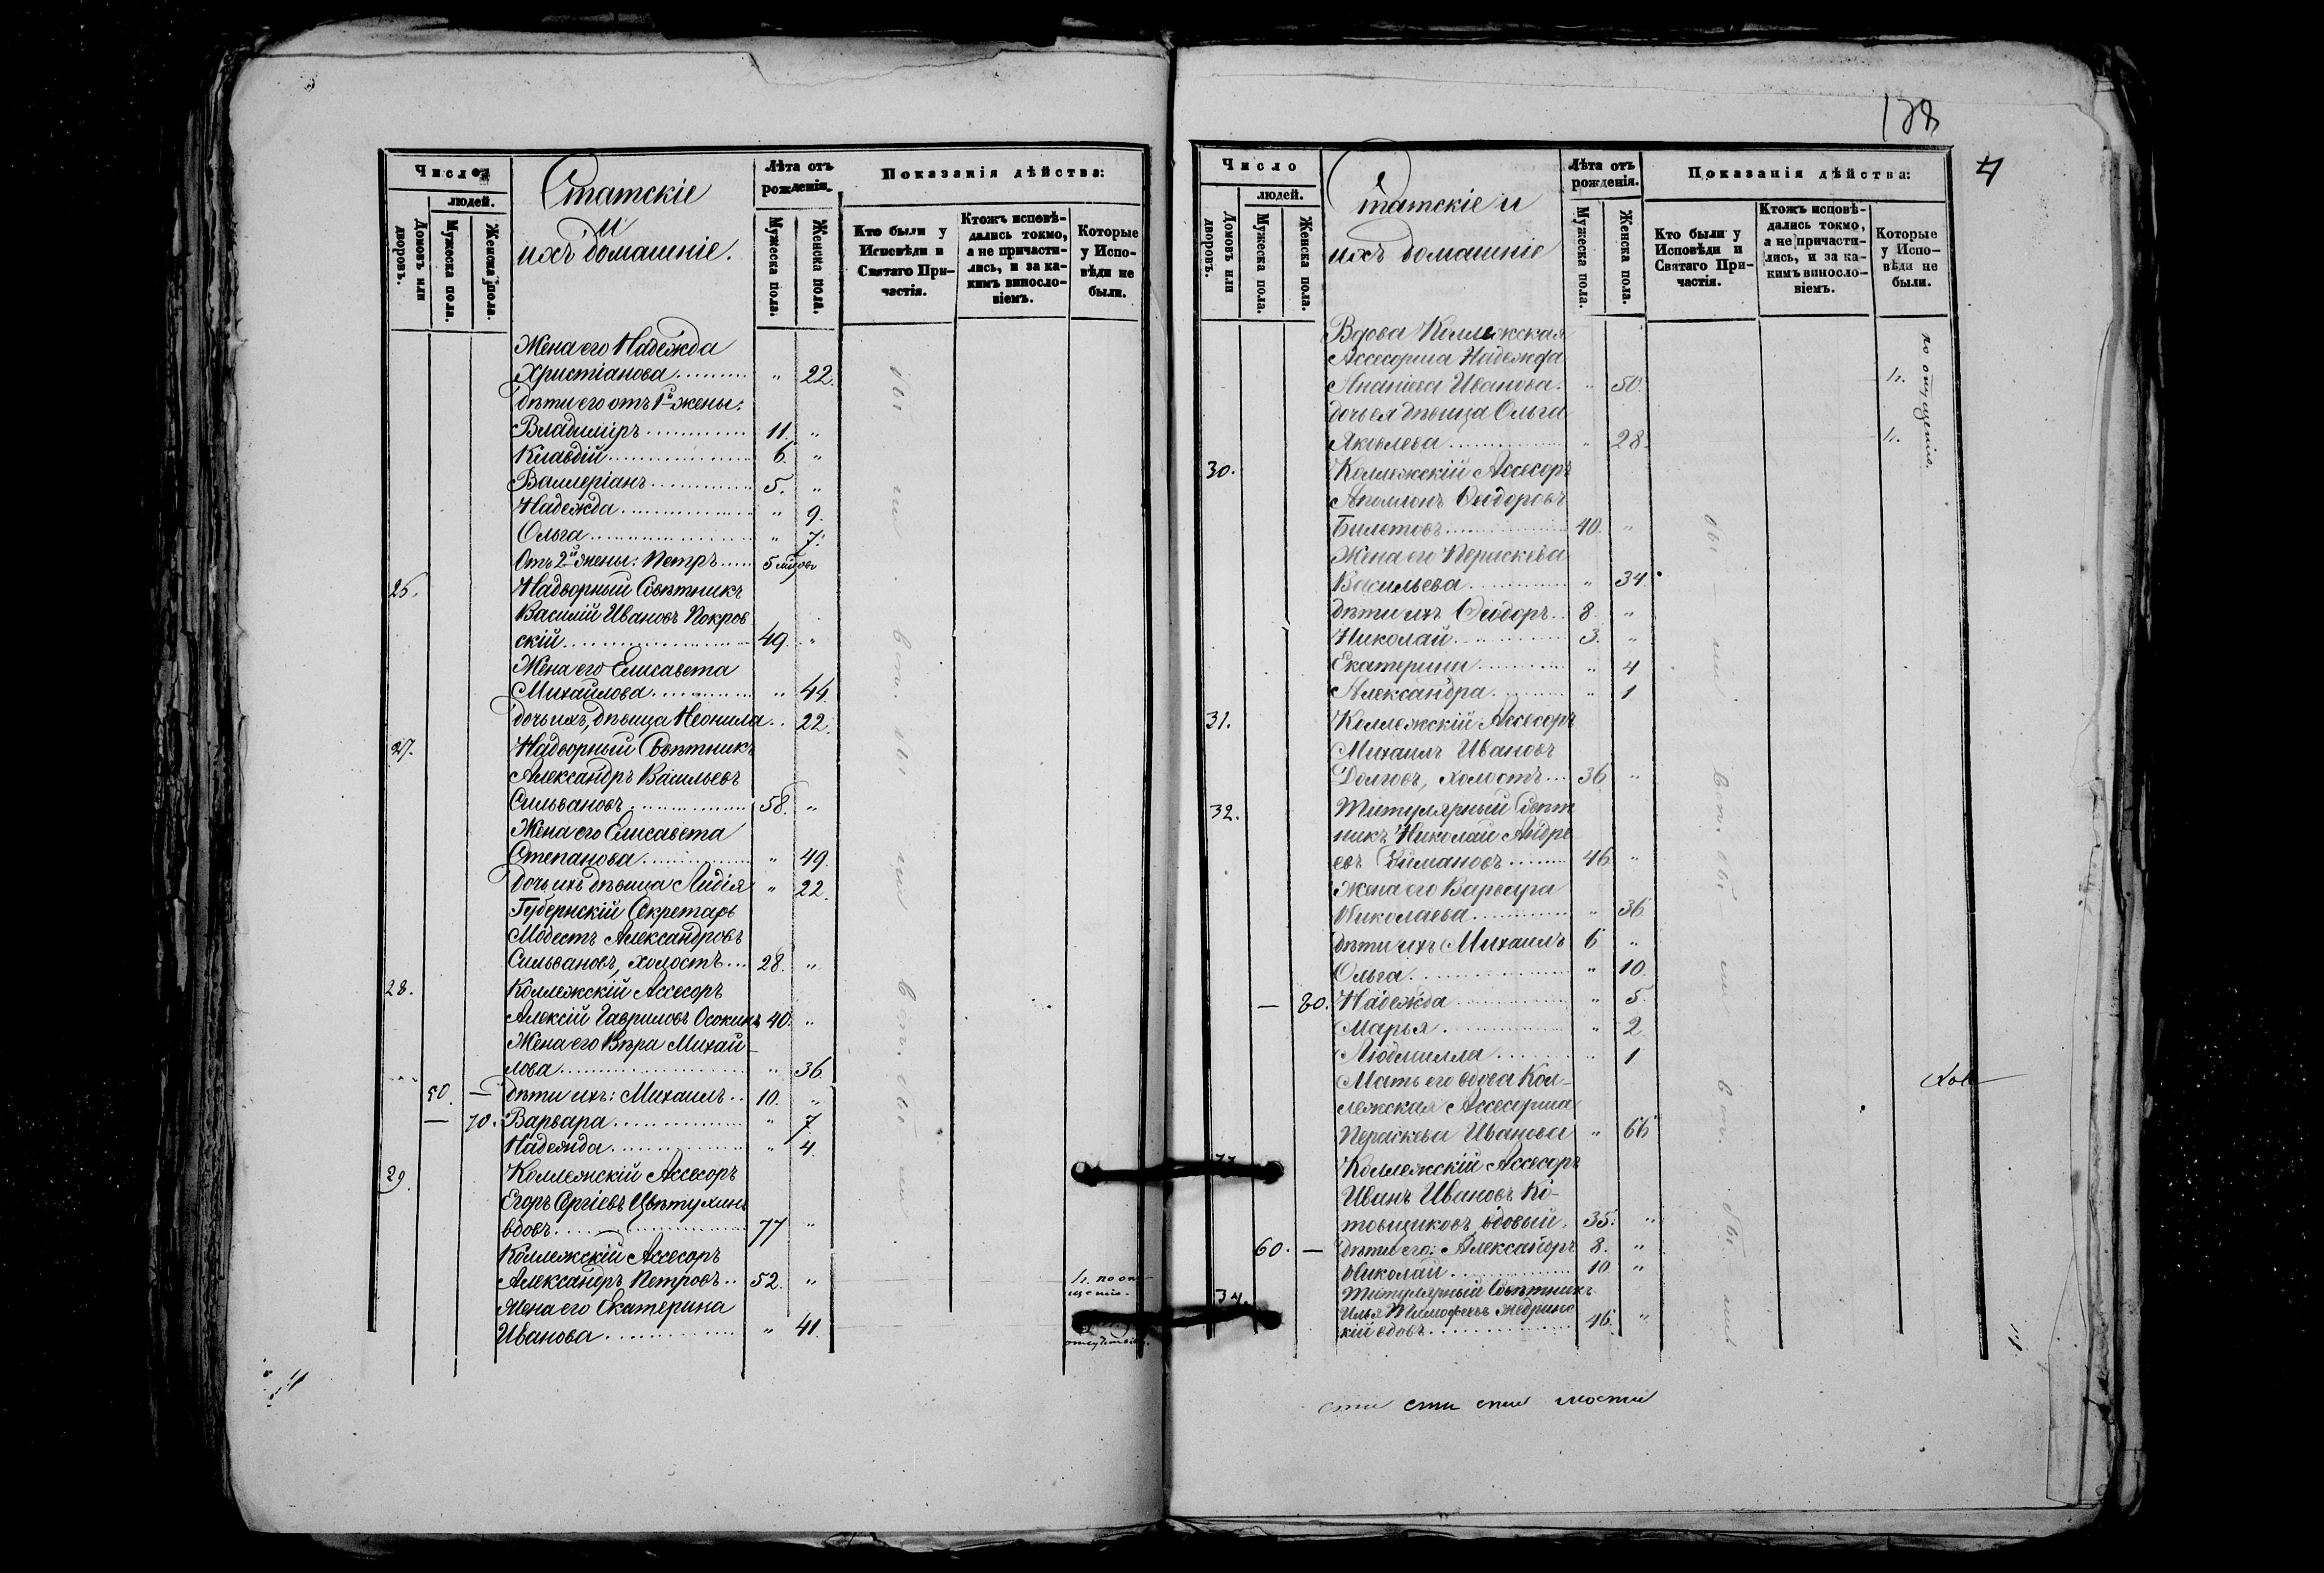 Число
людей.
Домовъ или дворовъ.
Мужеска пола.
Женска пола.
Статскіе
и
ихъ домашніе.
Лѣта отъ
рожденія.
Мужеска пола.
Женска пола.
Показанія дѣйства:
Кто были у
Исповѣди и
Святаго При-
частія.
Ктожъ исповѣ-
дались токмо,
а не причасти-
лись, и за ка-
кимъ винosло-
віемъ.
Которые
у Испо-
вѣди не
были.
Жена его Надежда
Христіанова " 22.
дѣти его отъ 1й жены:
Владиміръ 11. "
Клавдій 6. "
Валлеріанъ 5. "
Надежда " 9.
Ольга " 7.
Отъ 2й жены: Петръ 5
Надворный Совѣтникъ
Василій Ивановъ Покров
скій 49. "
Жена его Елисавета
Михайлова " 44.
дочь ихъ, дѣвица Неонила 22.
27. Надворный Совѣтникъ
Александръ Васильевъ
Сильвановъ 58. "
Жена его Елисавета
Степанова " 49.
дочь ихъ дѣвица Лидія " 22.
Губернскій Секретарь
Модестъ Александровъ
Сильвановъ, холостъ 28. "
28. Коллежскій Ассесоръ
Алексій Гавриловъ Осокинъ 40. "
Жена его Вѣра Михай-
лова " 36.
50. — дѣти ихъ: Михаилъ 10. "
— 70. Варвара " 7
Надежда " 4.
29. Коллежскій Ассесоръ
Егоръ Сергіевъ Цвѣтухинъ
вдовъ 77 "
Коллежскій Ассесоръ
Александръ Петровъ 52. "
Жена его Екатерина
Иванова " 41.
138
4
Число
людей.
Домовъ или дворовъ.
Мужеска пола.
Женска пола.
Статскіе и
ихъ домашніе
Лѣта отъ
рожденія.
Мужеска пола.
Женска пола.
Показанія дѣйства:
Кто были у
Исповѣди и
Святаго При-
частія.
Ктожъ исповѣ-
дались токмо,
а не причасти-
лись, и за ка-
кимъ винosло-
віемъ.
Которые
у Испо-
вѣди не
были.
по опущенію.
Вдова Коллежская
Ассесорша Надежда
Ананіева Иванова " 50. н.
дочь ея дѣвица Ольга
Яковлева " 28. н.
30. Коллежскій Ассесоръ
Аполлонъ Ѳеодоровъ
Билетовъ 40. "
Жена его Параскева
Васильева " 34.
дѣти ихъ Ѳеодоръ 8. "
Николай 3. "
Екатерина " 4
Александра " 1
31. Коллежскій Ассесоръ
Михаилъ Ивановъ
Долговъ, холостъ 36 "
32. Титулярный Совѣт
никъ Николай Андре
евъ 46 "
Жена его Варвара
Николаева " 36
дѣти ихъ Михаилъ 6 "
Ольга " 10
— 80. Надежда " 5
Марья " 2
Людмилла " 1
Мать его вдова Кол-
лежская Ассесорша
Параскева Иванова " 66
Коллежскій Ассесоръ
Иванъ Ивановъ Ко-
товщиковъ вдовый 35. "
60. — дѣти его: Александръ 8. "
Николай 10 "
34. Титулярный Совѣтникъ
Илья Тимофеевъ Жедрин
скій вдовъ 46. "
сти сти сти мости